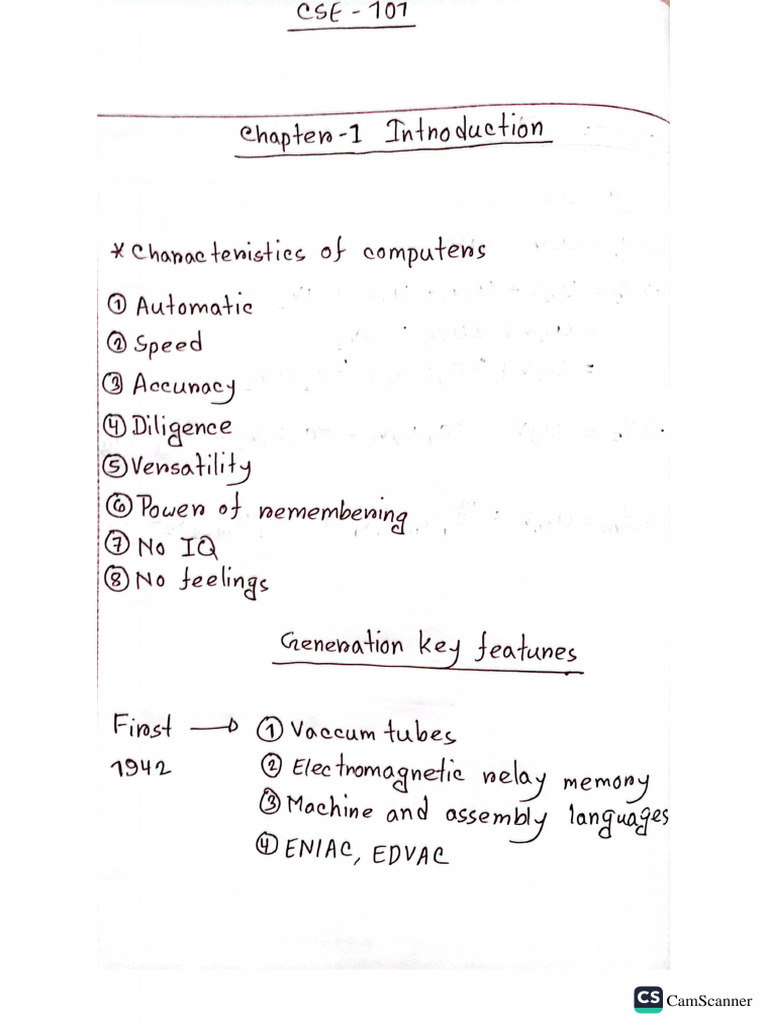 CSE - 101
Chapter-1 Introduction
* Characteristics of computers
① Automatic
② Speed
③ Accuracy
④ Diligence
⑤ Versatility
⑥ Power of remembering
⑦ No IQ
⑧ No feelings
Generation key features
First → ① Vaccum tubes
1942 ② Electromagnetic relay memory
③ Machine and assembly languages
④ ENIAC, EDVAC
CS CamScanner